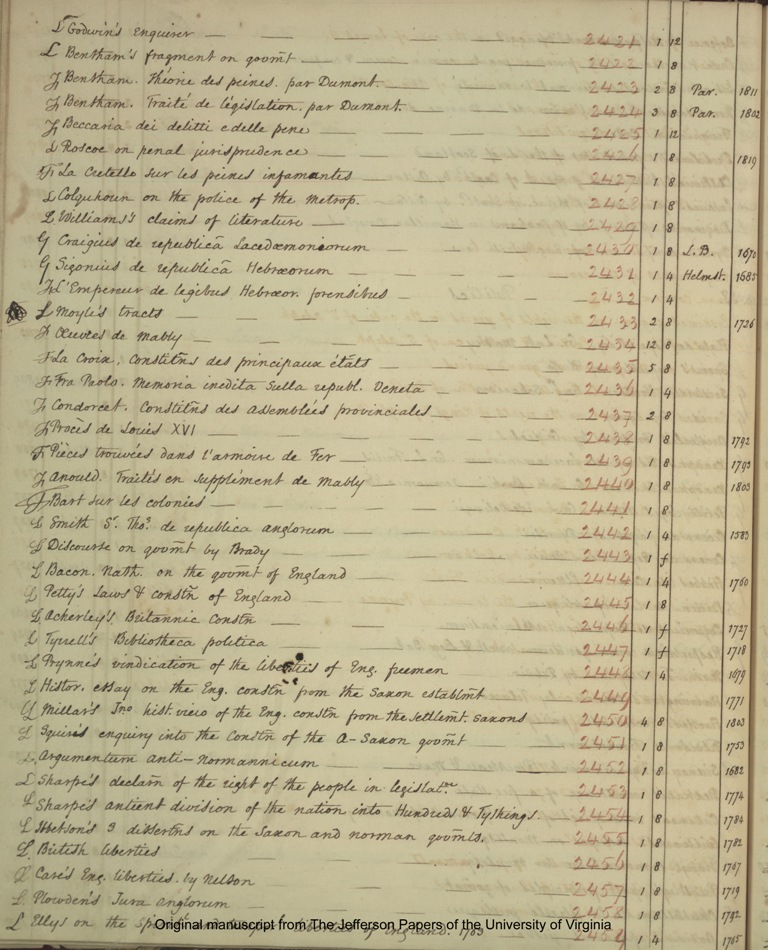 L Godwin's Enquirer — 2421 1 12
L Bentham's fragment on govmt — 2422 1 8
F Bentham. Théorie des peines. par Dumont. 2423 2 8 Par. 1811
F Bentham. Traité de législation. par Dumont. 2424 3 8 Par. 1802
F Beccaria dei delitti e delle pene 2425 1 12
L Roscoe on penal jurisprudence 2426 1 8 1819
F La Cretelle sur les peines infamantes 2427 1 8
L Colquhoun on the police of the metrop. 2428 1 8
L Williams's claims of literature 2429 1 8
G Craigius de republicâ Lacedæmoniorum 2430 1 8 L.B. 1670
G Sigonius de republicâ Hebræorum 2431 1 4 Helmst. 1685
F L'Empereur de legibus Hebræor. forensibus 2432 1 4
L Moyle's tracts 2433 2 8 1726
F Œuvres de Mably 2434 12 8
F La Croix. Constitns des principaux états 2435 5 8
F Fra Paolo. Memoria inedita sulla republ. Veneta 2436 1 4
F Condorcet. Constitns des assemblées provinciales 2437 2 8
F Procès de Louis XVI 2438 1 8 1792
F Pièces trouvées dans l'armoire de Fer 2439 1 8 1793
F Anould. Traités en supplément de Mably 2440 1 8 1803
F Bart sur les colonies 2441 1 8
L Smith Sr. Thos. de republica anglorum 2442 1 4 1583
L Discourse on govmt by Brady 2443 1 f
L Bacon. Nath. on the govmt of England 2444 1 4 1760
L Petty's Laws & constn of England 2445 1 8
L Ackerley's Britannic Constn 2446 1 f 1727
L Tyrell's Bibliotheca politica 2447 1 f 1718
L Prynne's vindication of the liberties of Eng. freemen 2448 1 4 1679
L Histor. essay on the Eng. constn from the Saxon establmt 2449 1771
Millar's Jno hist. view of the Eng. constn from the settlemt. Saxons 2450 4 8 1803
L Squire's enquiry into the Constn of the A-Saxon govmt 2451 1 8 1753
L Argumentum anti-normannicum 2452 1 8 1682
L Sharpe's declarn of the right of the people in legislat.re 2453 1 8 1774
L Sharpe's antient division of the nation into Hundreds & Tythings. 2454 1 8 1784
L Ibbetson's 3 dissertns on the Saxon and norman govmts. 2455 1 8 1782
L British liberties 2456 1 8 1767
L Care's Eng. liberties. by Nelson 2457 1 8 1719
L Plowden's Jura anglorum 2458 1 8 1792
L Ellys on the of England. 1765 1 4 1765
Original manuscript from The Jefferson Papers of the University of Virginia